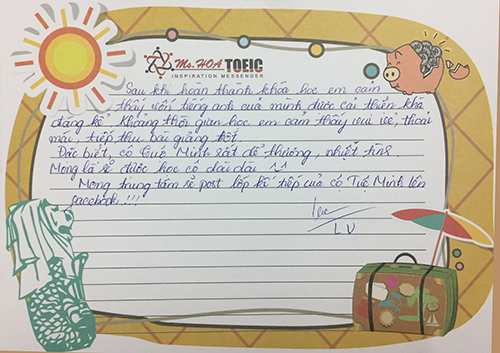 Ms.HOA TOEIC
INSPIRATION MESSENGER
Sau khi hoàn thành khóa học em cảm
thấy vốn tiếng anh của mình được cải thiện khá
đáng kể. Khoảng thời gian học em cảm thấy vui vẻ, thoải
mái, tiếp thu bài giảng tốt.
Đặc biệt, cô Tuệ Minh rất dễ thương, nhiệt tình.
Mong là sẽ được học cô dài dài
Mong trung tâm sẽ post lớp kế tiếp của cô Tuệ Minh lên
facebook !!!
LV